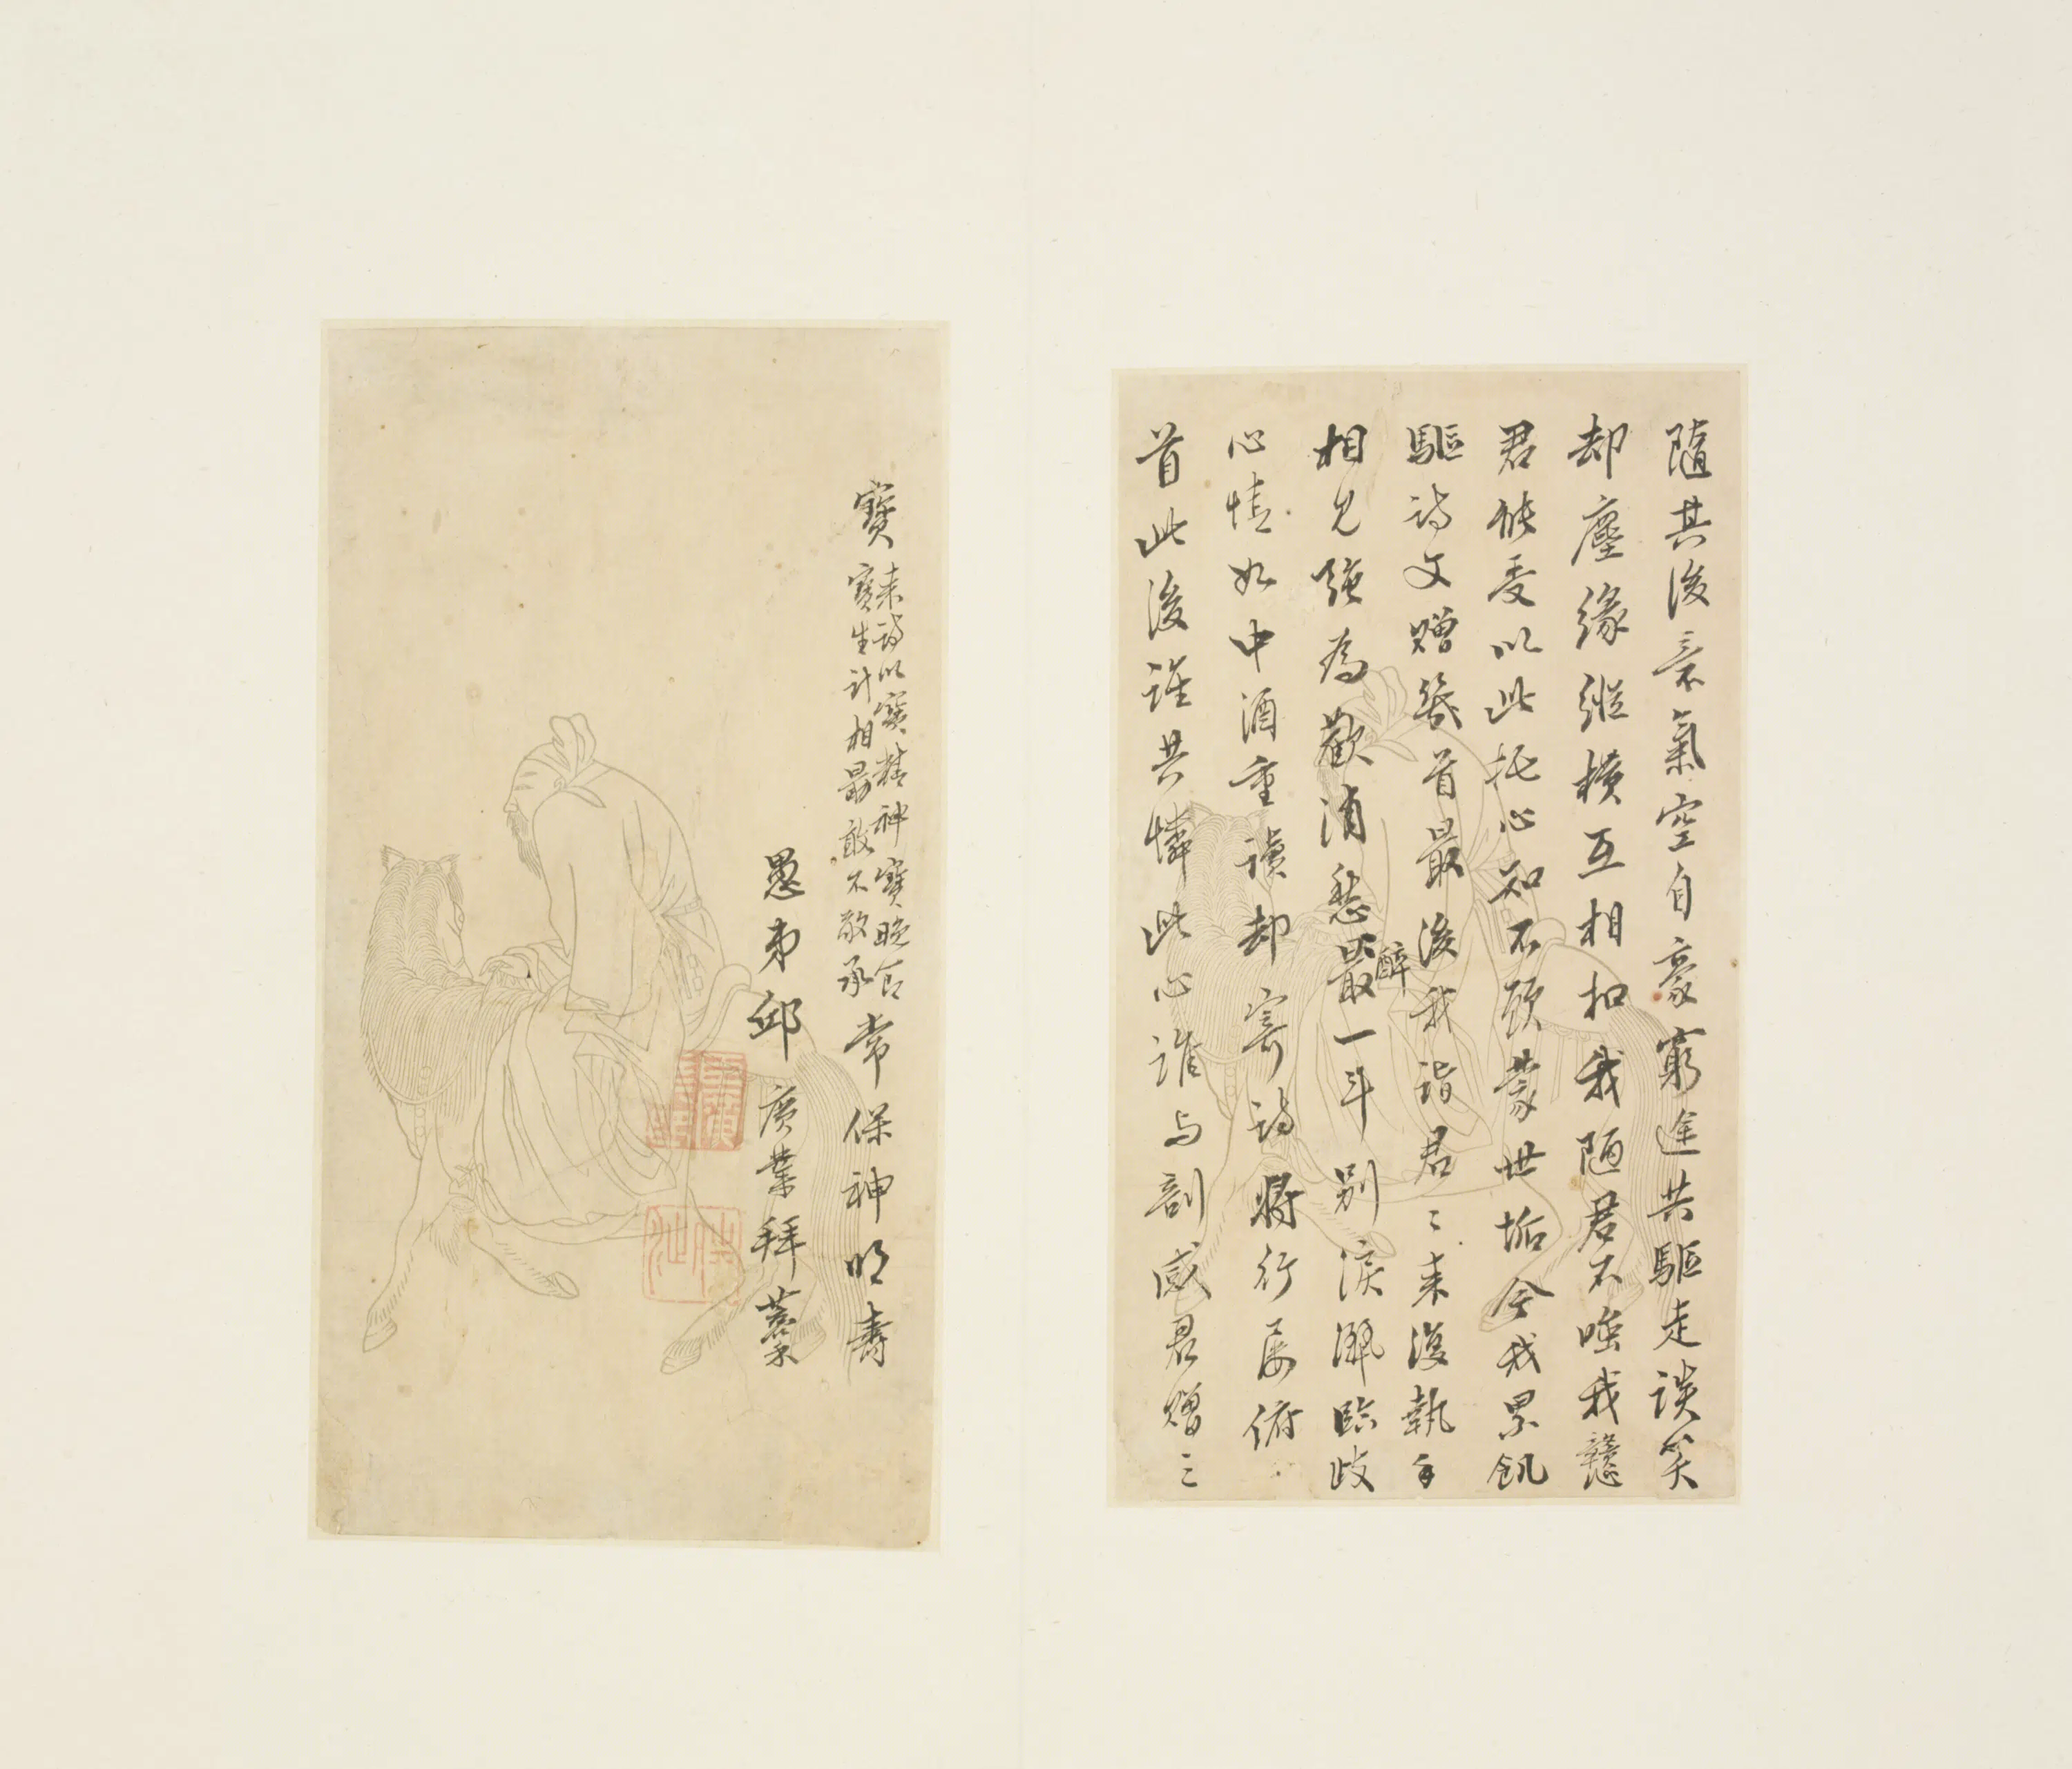 隨其後意氣空自豪窮途共驅走談笑
却塵緣縱橫互相扣我隨君不嗤我戇
君能受以此托心知不顧蒙世垢今我累飢
驅詩文贈答首最後我詣君〻來復執手
相見強為歡消愁醉一斗別淚灑臨歧
心情如中酒重讀却寄詩將行屢俯
首此後誰共憐此心誰与剖感君贈三
寶
來詩以寶精神寶晚節
寶生計相勗敢不敬承
常保神明壽
愚弟邱廣業拜藁